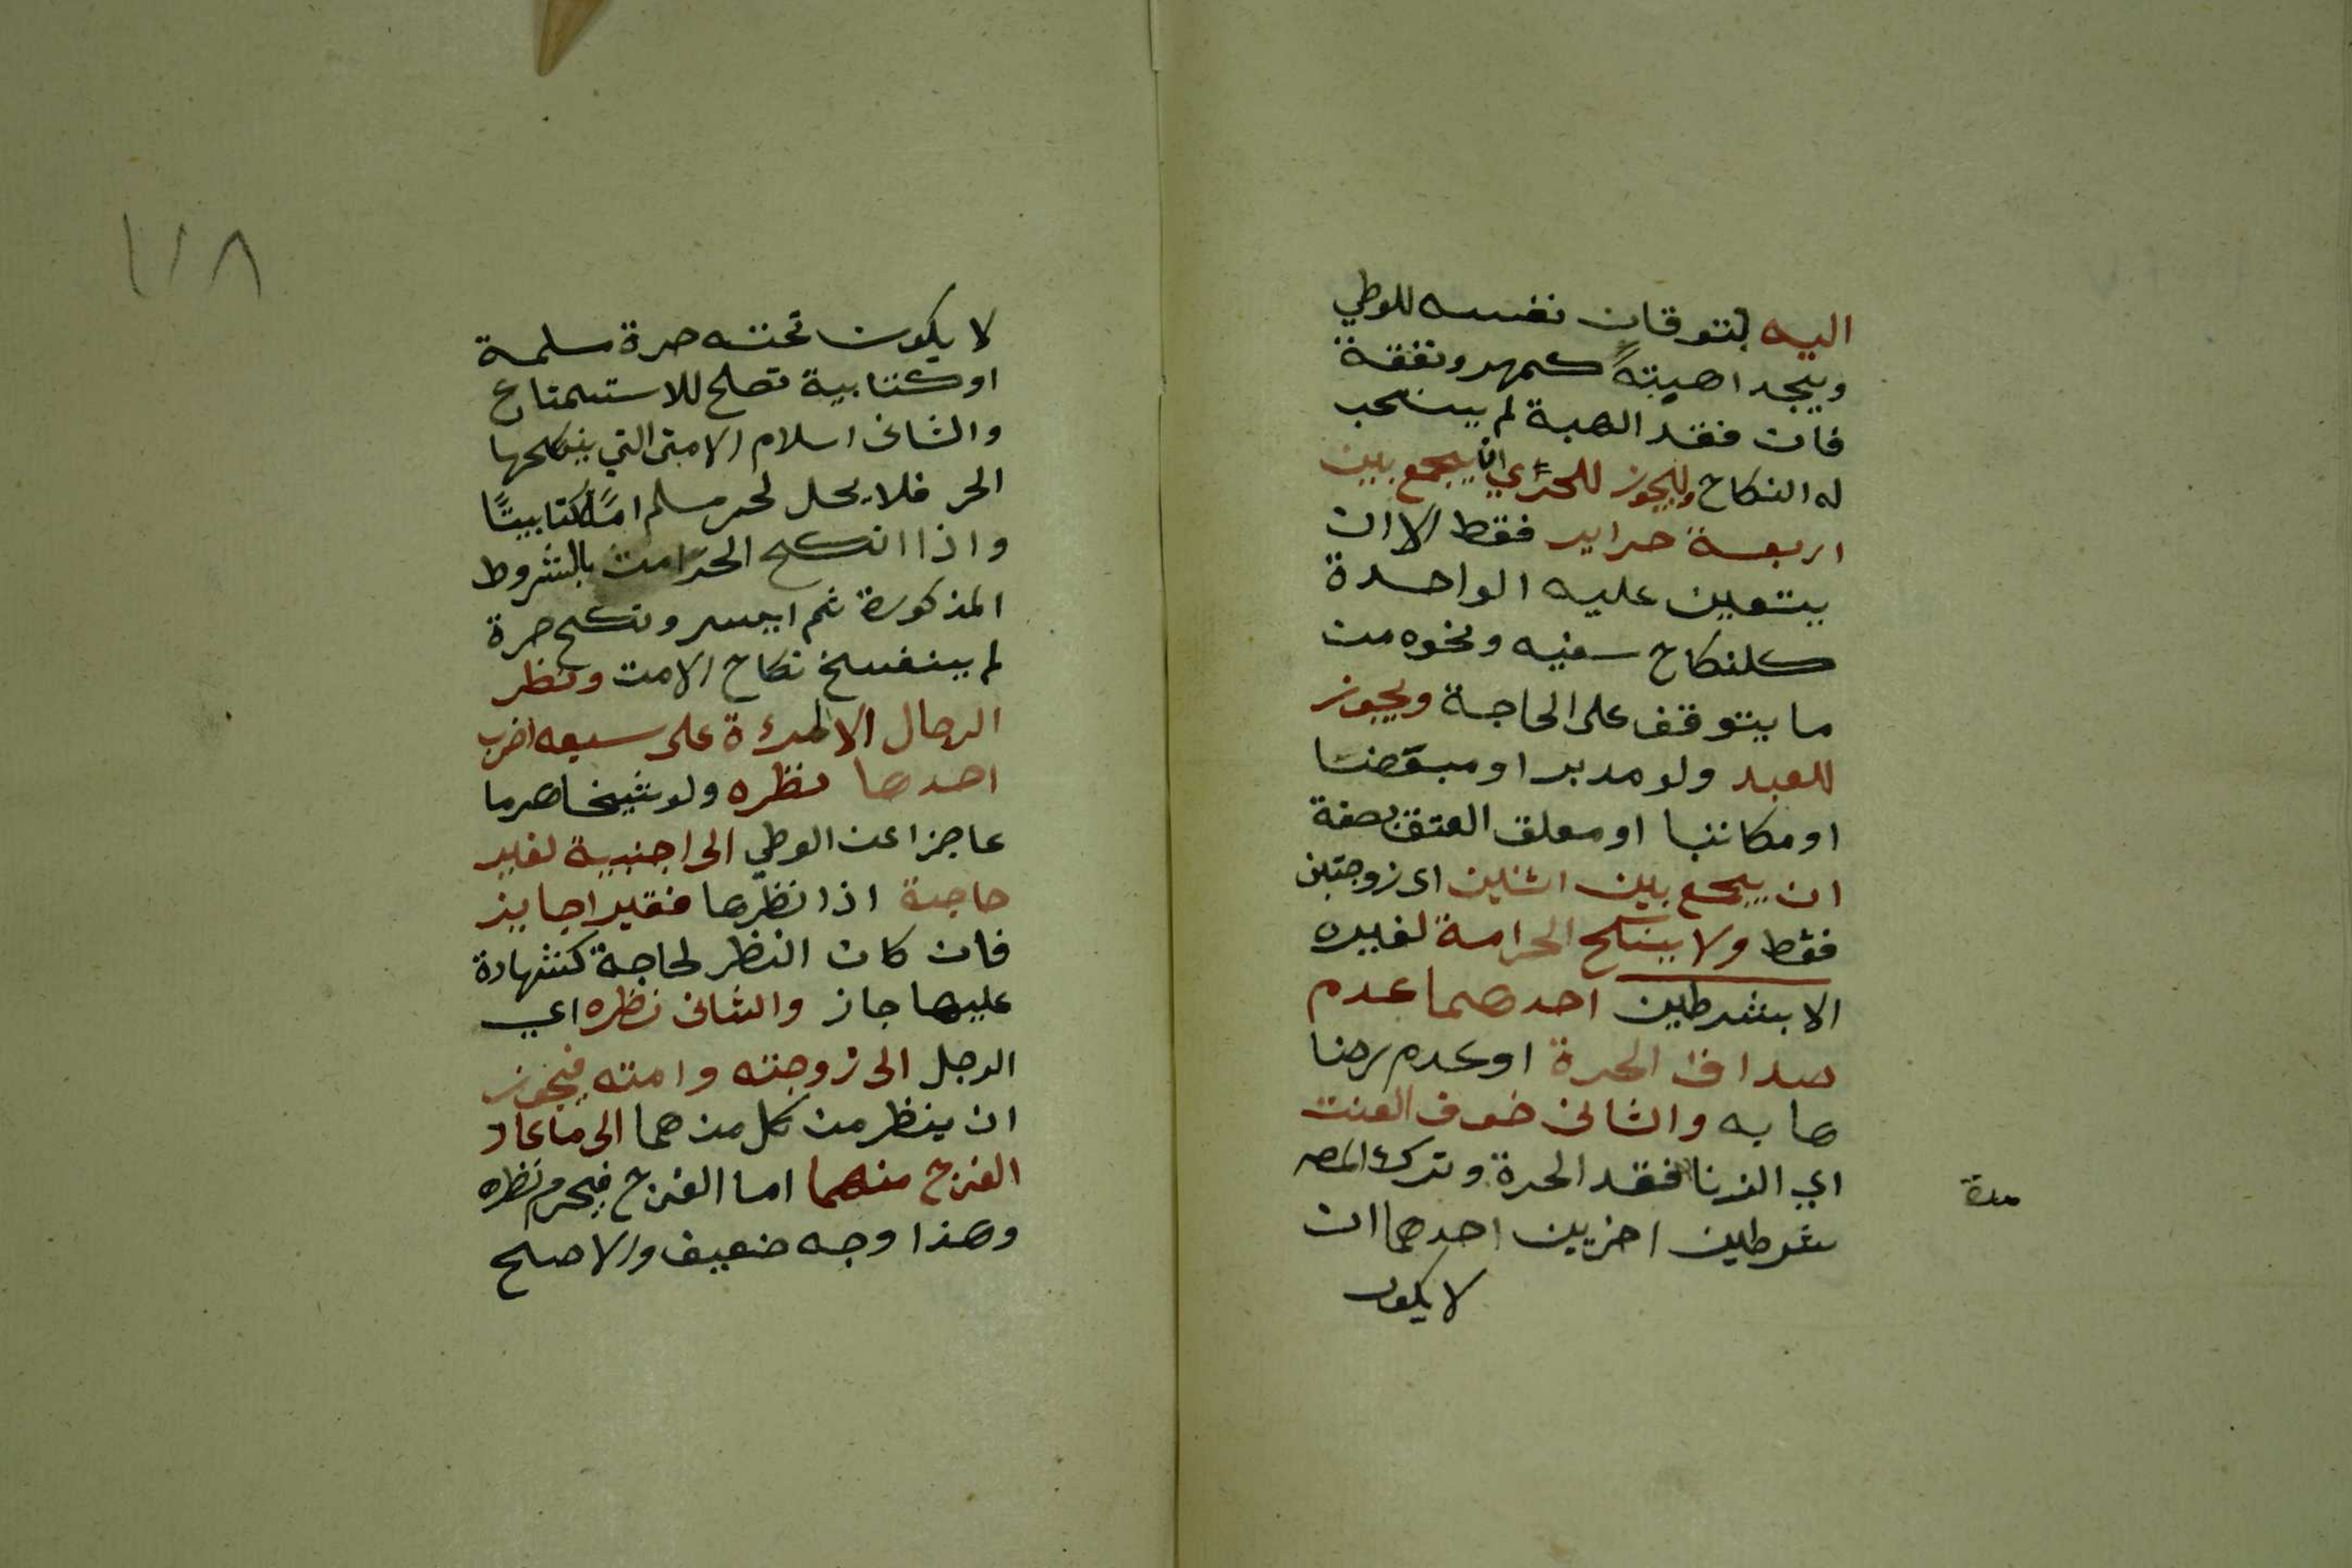 اليه بتوقان نفسه للوطي
ويجد اهيتةً كمهر ونفقة
فان فقد الهبة لم يستحب
له النكاح ويجوز للحر ان يجمع بين
اربعة حراير فقط الا ان
يتعين عليه الواحدة
كلنكاح سفيه ونحوه من
ما يتوقف على الحاجة ويجوز
للعبد ولو مدبر او مبعضا
او مكاتبا او معلق العتق بصفة
ان يجمع بين اثنين اى زوجتين
فقط ولا ينكح الحر امة لغيره
الا بشرطين احدهما عدم
صداق الحرة او عدم رضا
ها به والثانى خوف العنت
اي الزنا فقد الحرة وترك المص
شرطين اخرين احدهما ان
لا يكون
مدة
١١٨
لا يكون تحته حرة مسلمة
او كتابية تصلح للاستمتاع
والثانى اسلام الامتى التي ينكحها
الحر فلا يحل لحر مسلم امتًا كتابيتًا
واذا انكح الحر امت بالشروط
المذكورة ثم ايسر ونكح حرة
لم ينفسخ نكاح الامت ونظر
الرجال الا المرءة على سبعه اضرب
احدها نظره ولو شيخا هرما
عاجزا عن الوطي الى اجنبية لغير
حاجة اذا نظرها فقير اجايز
فان كان النظر لحاجة كشهادة
عليها جاز والثانى نظره اي
الرجل الى زوجته وامته فيجوز
ان ينظر من كل من هما الى ما عاد
الفرج منهما اما الفرج فيحرم نظره
وهذا وجه ضعيف والاصح